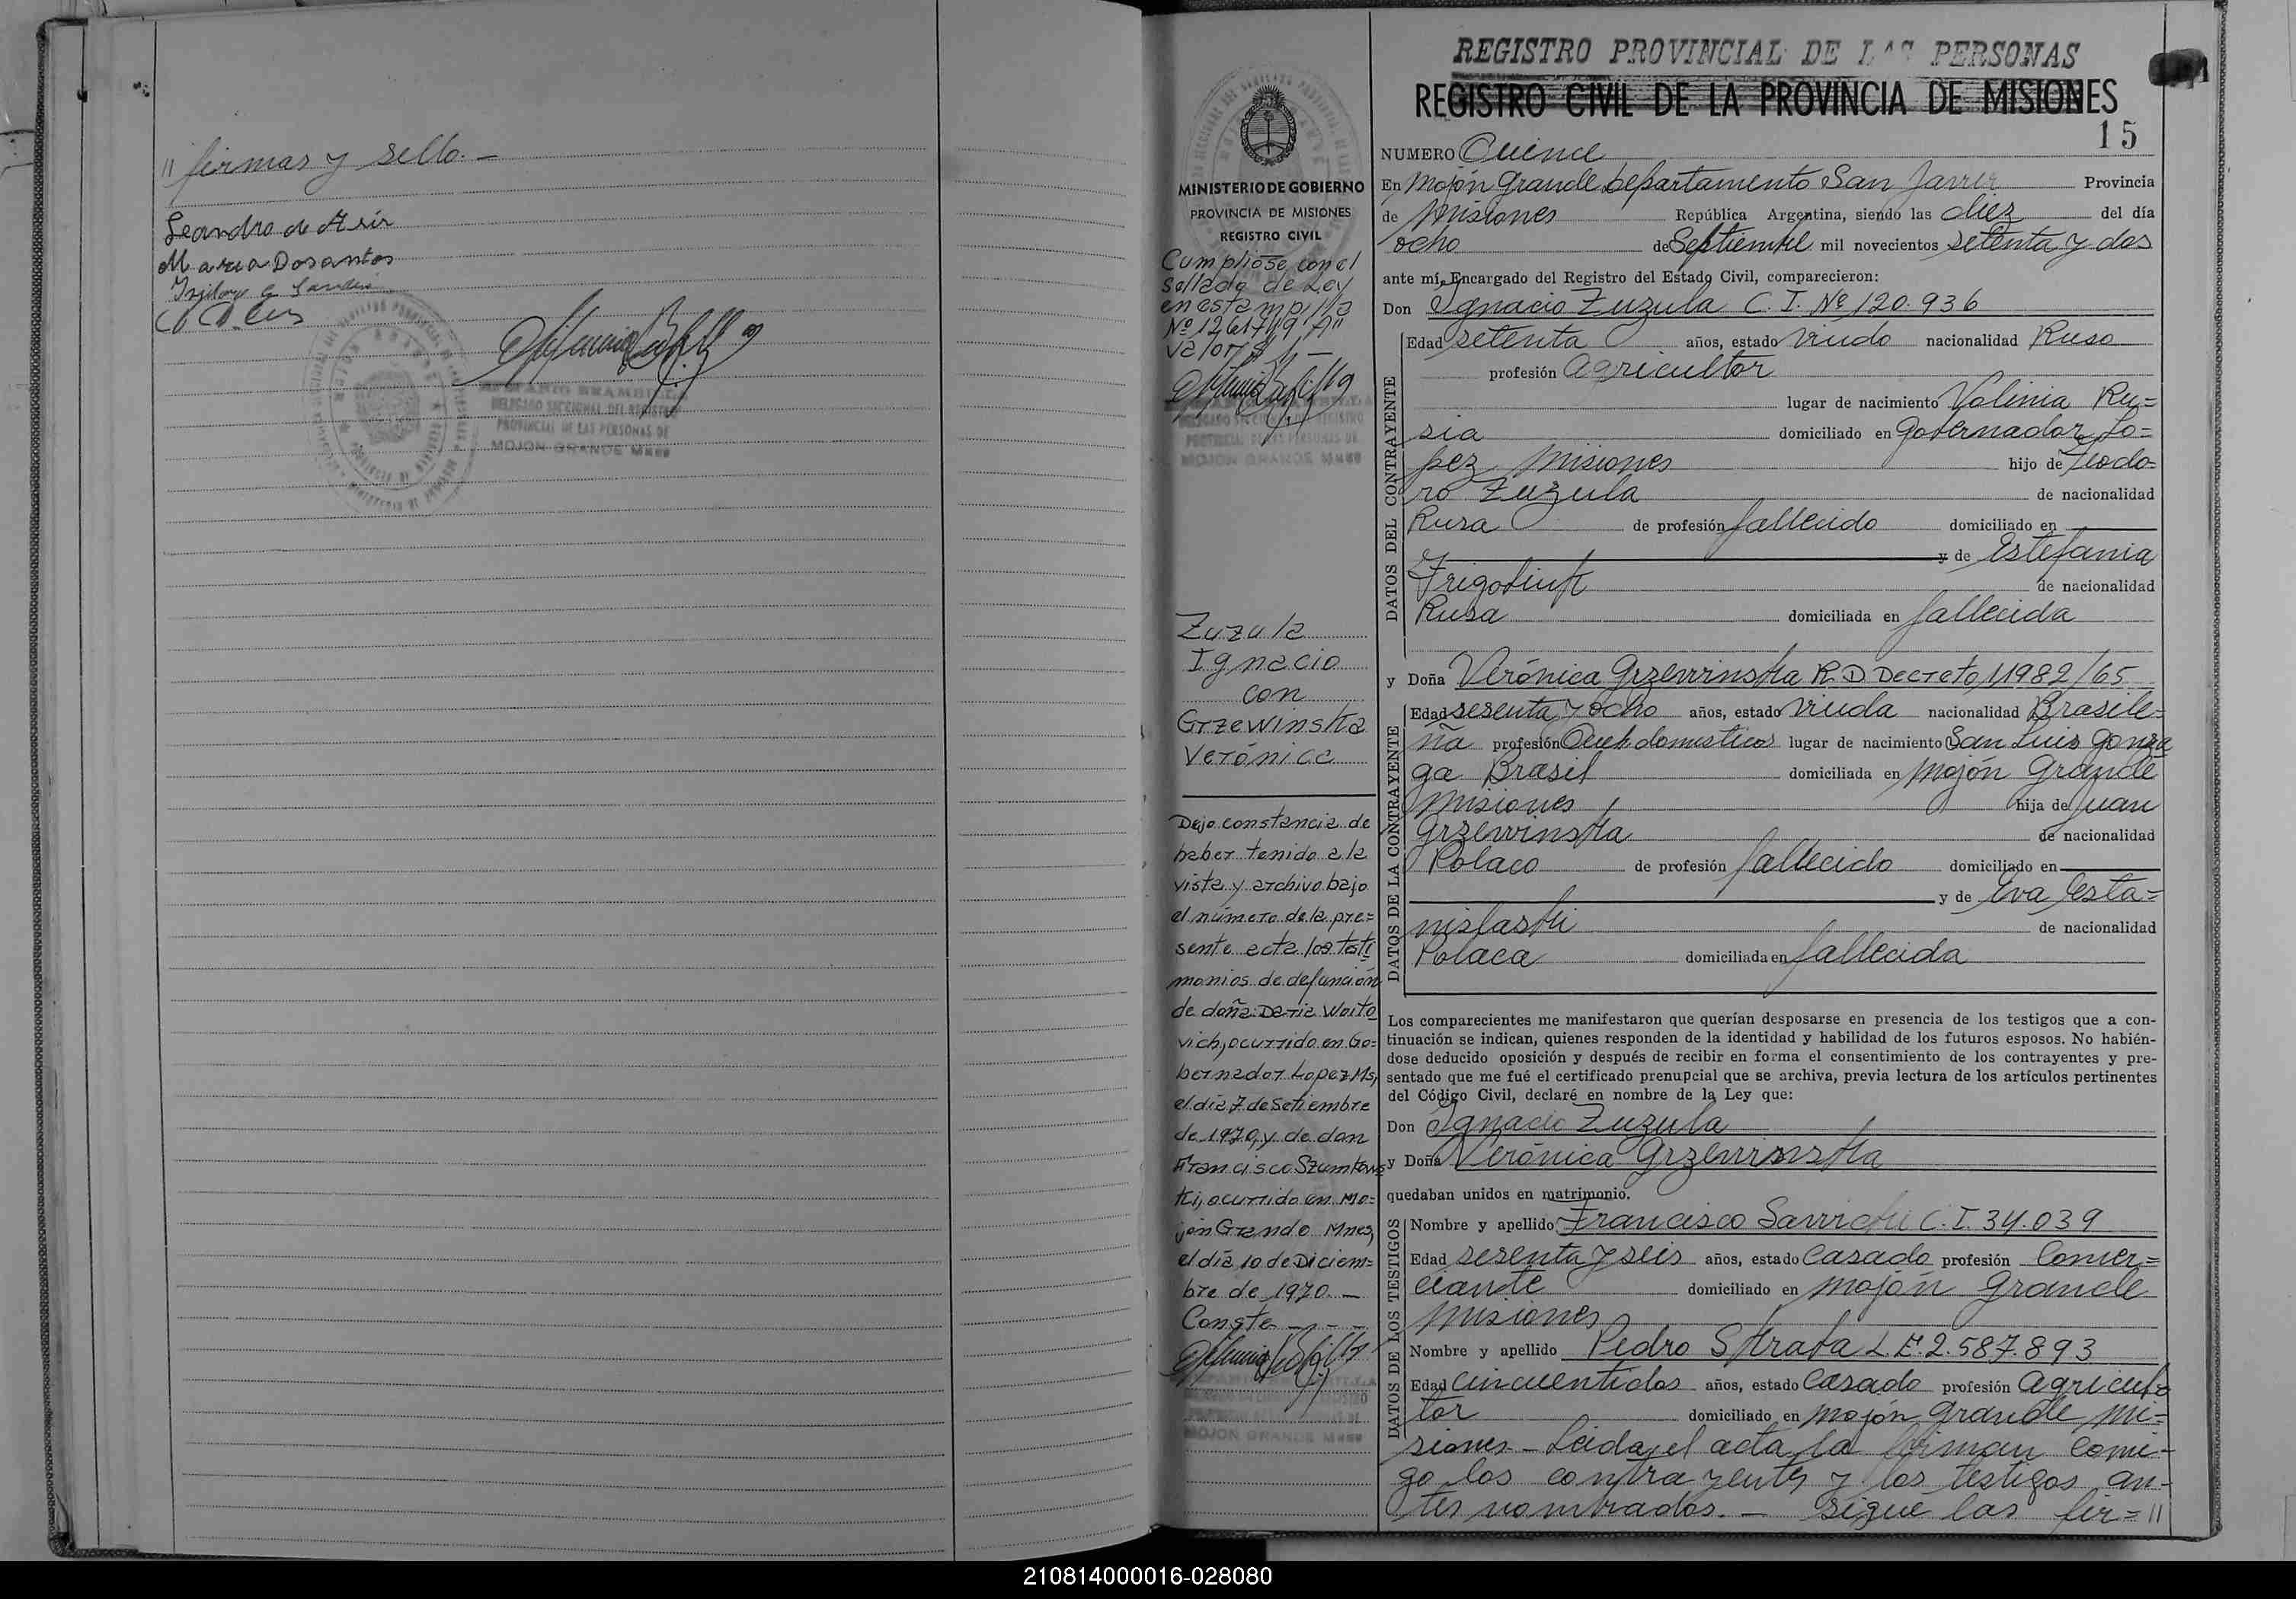 " firmas y sello.-
Leandro de
Maria Dosantos
DELEGADO SECCIONAL DEL REGISTRO
PROVINCIAL DE LAS PERSONAS DE
MOJON GRANDE Mnes
MINISTERIO DE GOBIERNO
PROVINCIA DE MISIONES
REGISTRO CIVIL
Cumplióse con el
sellado de Ley
en estampilla
Nº
valor $
DELEGADO SECCIONAL DEL REGISTRO
PROVINCIAL DE LAS PERSONAS DE
MOJON GRANDE Mnes
Zuzula
Ignacio
con
Grzewinska
Verónica
Dejo constancia de
haber tenido a la
vista y archivo bajo
el número de la pre=
sente acta los testi
monios de defunción
de doña: Daria Woito
vich, ocurrido en Go=
bernador Lopez Ms,
el día 7 de Setiembre
de 1970, y de don
Francisco Szumkows
ki, ocurrido en Mo=
jón Grande Mnes,
el día 10 de Diciem=
bre de 1970.-
Conste - - -
MOJON GRANDE Mnes
REGISTRO PROVINCIAL DE LAS PERSONAS
REGISTRO CIVIL DE LA PROVINCIA DE MISIONES
15
NUMERO Quince
En Mojón Grande Departamento San Javier Provincia
de Misiones República Argentina, siendo las diez del día
ocho de Septiembre mil novecientos setenta y dos
ante mí, Encargado del Registro del Estado Civil, comparecieron:
Don Ignacio Zuzula C.I. Nº 120.936
DATOS DEL CONTRAYENTE
Edad setenta años, estado viudo nacionalidad Ruso
profesión Agricultor
lugar de nacimiento Volinia Ru=
sia domiciliado en Gobernador Ló=
pez Misiones hijo de Teodo=
ro Zuzula de nacionalidad
Rusa de profesión fallecido domiciliado en
y de Estefania
de nacionalidad
Rusa domiciliada en fallecida
y Doña Verónica Grzewinska R.D Decreto 11982/65
DATOS DE LA CONTRAYENTE
Edad sesenta y ocho años, estado viuda nacionalidad Brasile=
ña profesión Queh. domesticos lugar de nacimiento San Luis Gonza
ga Brasil domiciliada en Mojón Grande
Misiones hija de Juan
Grzewinska de nacionalidad
Polaco de profesión fallecido domiciliado en
y de Eva Esta=
nislaski de nacionalidad
Polaca domiciliada en fallecida
Los comparecientes me manifestaron que querían desposarse en presencia de los testigos que a con-
tinuación se indican, quienes responden de la identidad y habilidad de los futuros esposos. No habién-
dose deducido oposición y después de recibir en forma el consentimiento de los contrayentes y pre-
sentado que me fué el certificado prenupcial que se archiva, previa lectura de los artículos pertinentes
del Código Civil, declaré en nombre de la Ley que:
Don Ignacio Zuzula
y Doña Verónica Grzewinska
quedaban unidos en matrimonio.
DATOS DE LOS TESTIGOS
Nombre y apellido Francisco Sawicki C.I. 34.039
Edad sesenta y seis años, estado Casado profesión Comer=
ciante domiciliado en Mojón Grande
Misiones
Nombre y apellido Pedro Skraba L.E. 2.587.893
Edad cincuentidos años, estado Casado profesión Agricul=
tor domiciliado en Mojón Grande Mi=
siones - Leida el acta la firman conmi-
go los contrayentes y los testigos an-
tes nombrados. - Sigue las fir="
210814000016-028080